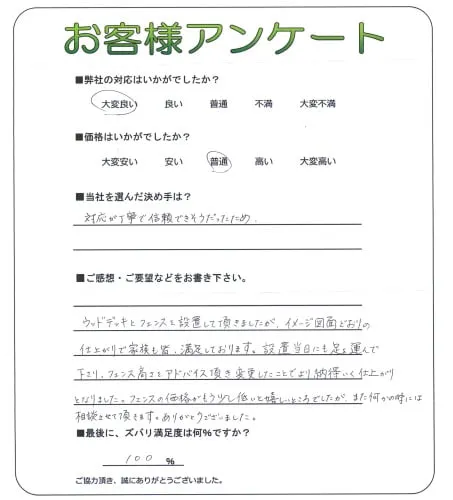 お客様アンケート
■弊社の対応はいかがでしたか？
大変良い 良い 普通 不満 大変不満
■価格はいかがでしたか？
大変安い 安い 普通 高い 大変高い
■当社を選んだ決め手は？
対応が丁寧で信頼できそうだったため.
■ご感想・ご要望などをお書き下さい。
ウッドデッキとフェンスを設置して頂きましたが、イメージ図面どおりの
仕上がりで家族も皆、満足しております。設置当日にも足を運んで
下さり、フェンス高さをアドバイス頂き変更したことでより納得いく仕上がり
となりました。フェンスの価格がもう少し低いと嬉しいところでしたが、また何かの時には
相談させて頂きます。ありがとうございました。
■最後に、ズバリ満足度は何%ですか？
100 %
ご協力頂き、誠にありがとうございました。